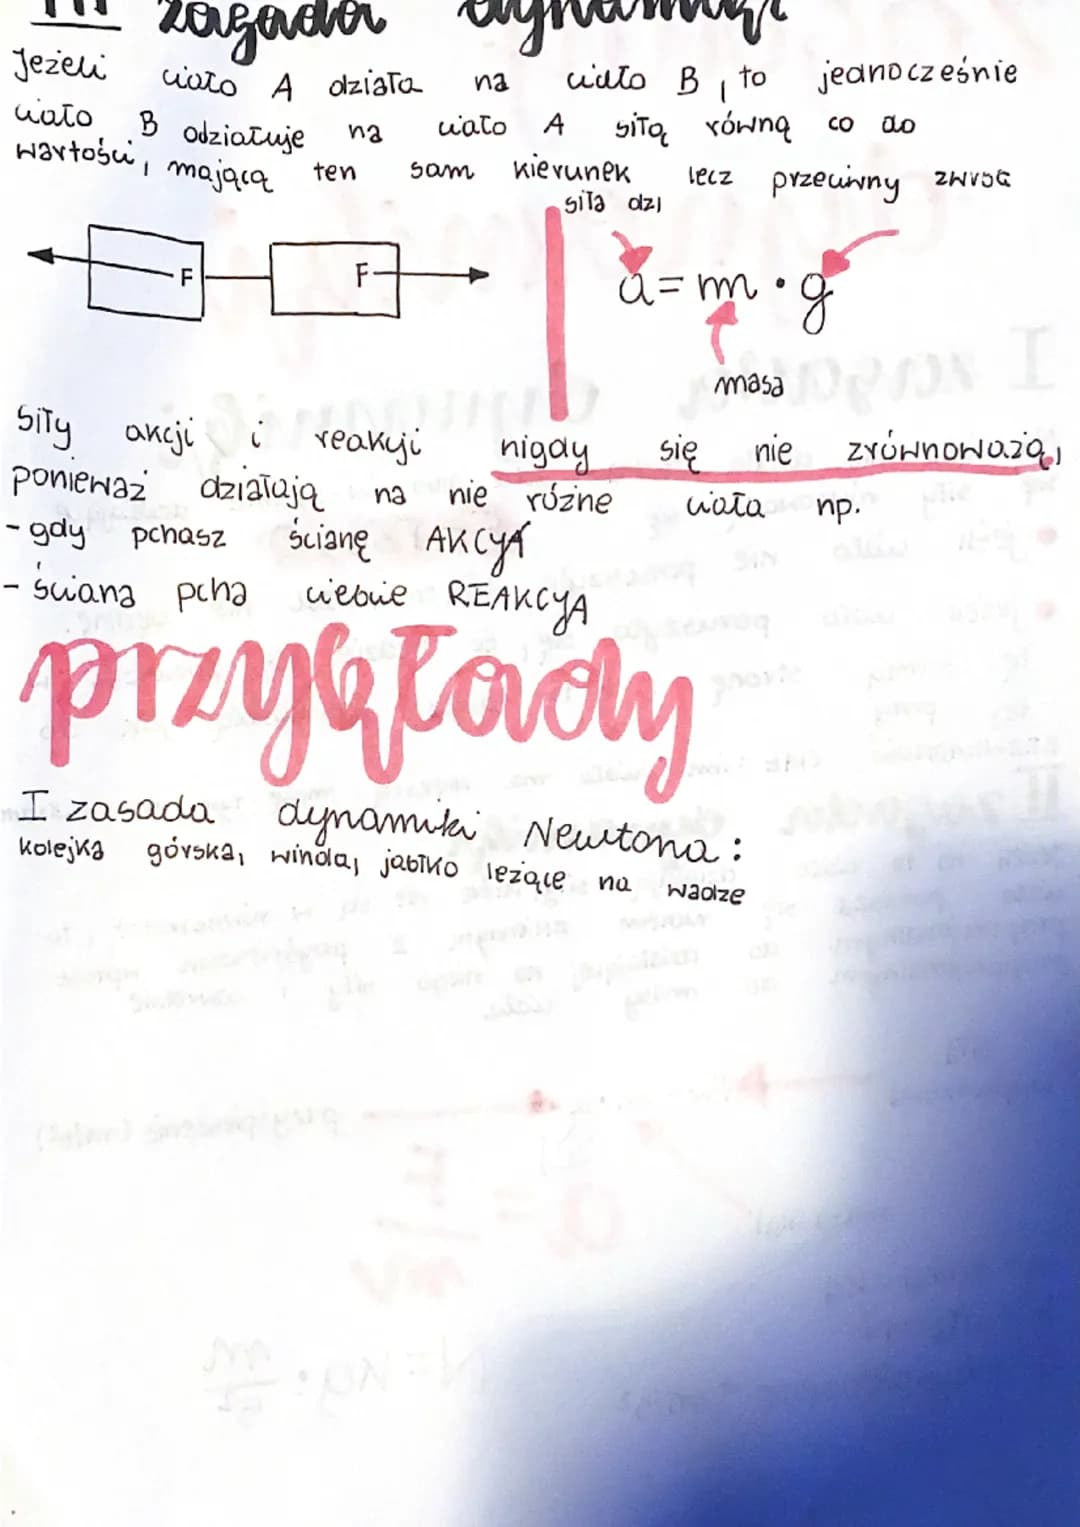 III zasada dynamiki
Jeżeli ciało A działa na ciało B, to jednocześnie
ciało B odziałuje na ciało A siłą równą co do
wartości, mającą ten sam kierunek lecz przeciwny zwrot
siła dzi
F F
a = m · g
masa
Siły akcji i reakcji nigdy się nie zrównoważą,
ponieważ działają na nie różne ciała np.
- gdy pchasz ścianę AKCYA
- ściana pcha ciebie REAKCYA
przykłady
I zasada dynamiki Newtona:
kolejka górska, winda, jabłko leżące na wadze